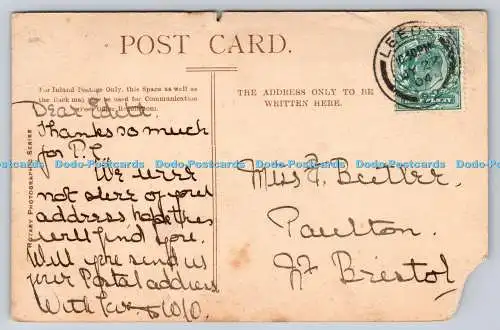 POST CARD.
For Inland Postage Only, this Space as well as
the Back may now be used for Communication
THE ADDRESS ONLY TO BE
WRITTEN HERE.
LEEDS
27
04
Dear Edith.
Thanks so much
for P.C.
We were
not sure of your
address hope this
will find you.
Will you send us
your Postal address
With Love
Miss
Paulton
Nr Bristol
ROTARY PHOTOGRAPHIC SERIES
Dodo-Postcards Dodo-Postcards Dodo-Postcards Dodo-Postcards Dodo-Postcards